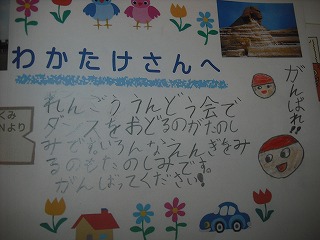 わかたけさんへ
れんごううんどう会で
ダンスをおどるのがたのし
みです。いろんなえんぎをみ
るのもたのしみです。
がんばってください!
がんばれ!!
くみ
より